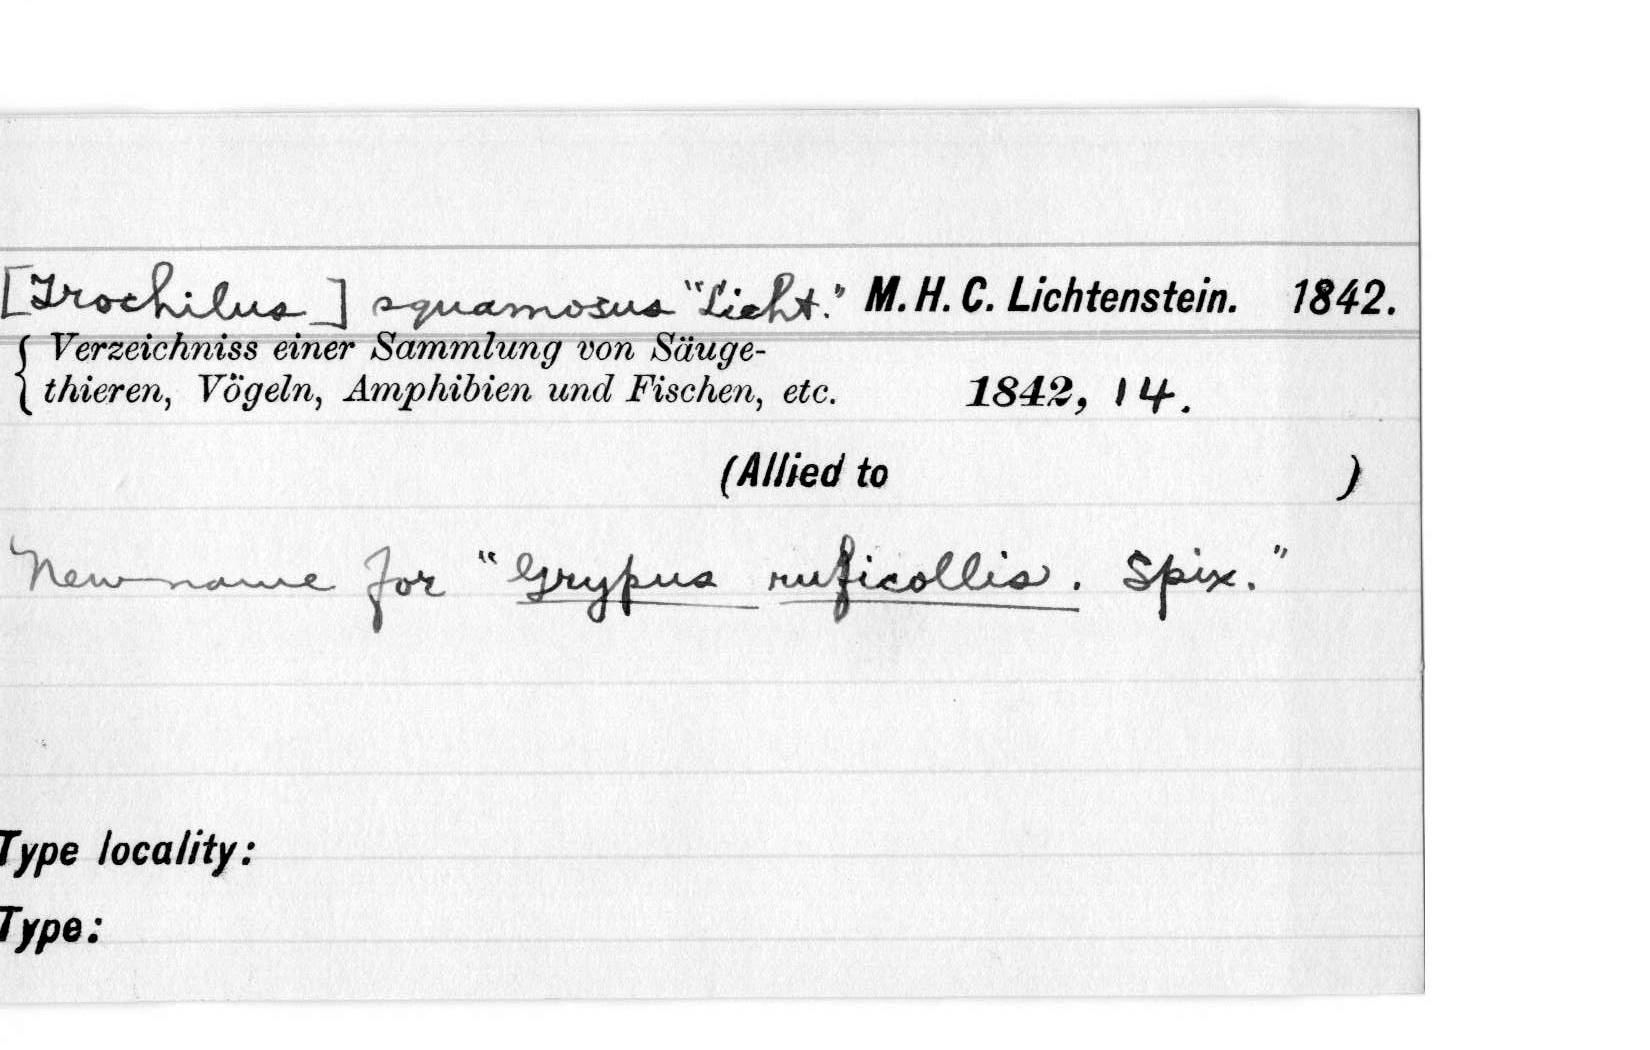 [Trochilus] squamosus "Licht." M. H. C. Lichtenstein. 1842.
Verzeichniss einer Sammlung von Säuge-
thieren, Vögeln, Amphibien und Fischen, etc. 1842, 14.
(Allied to )
New name for "Grypus ruficollis. Spix."
Type locality:
Type: